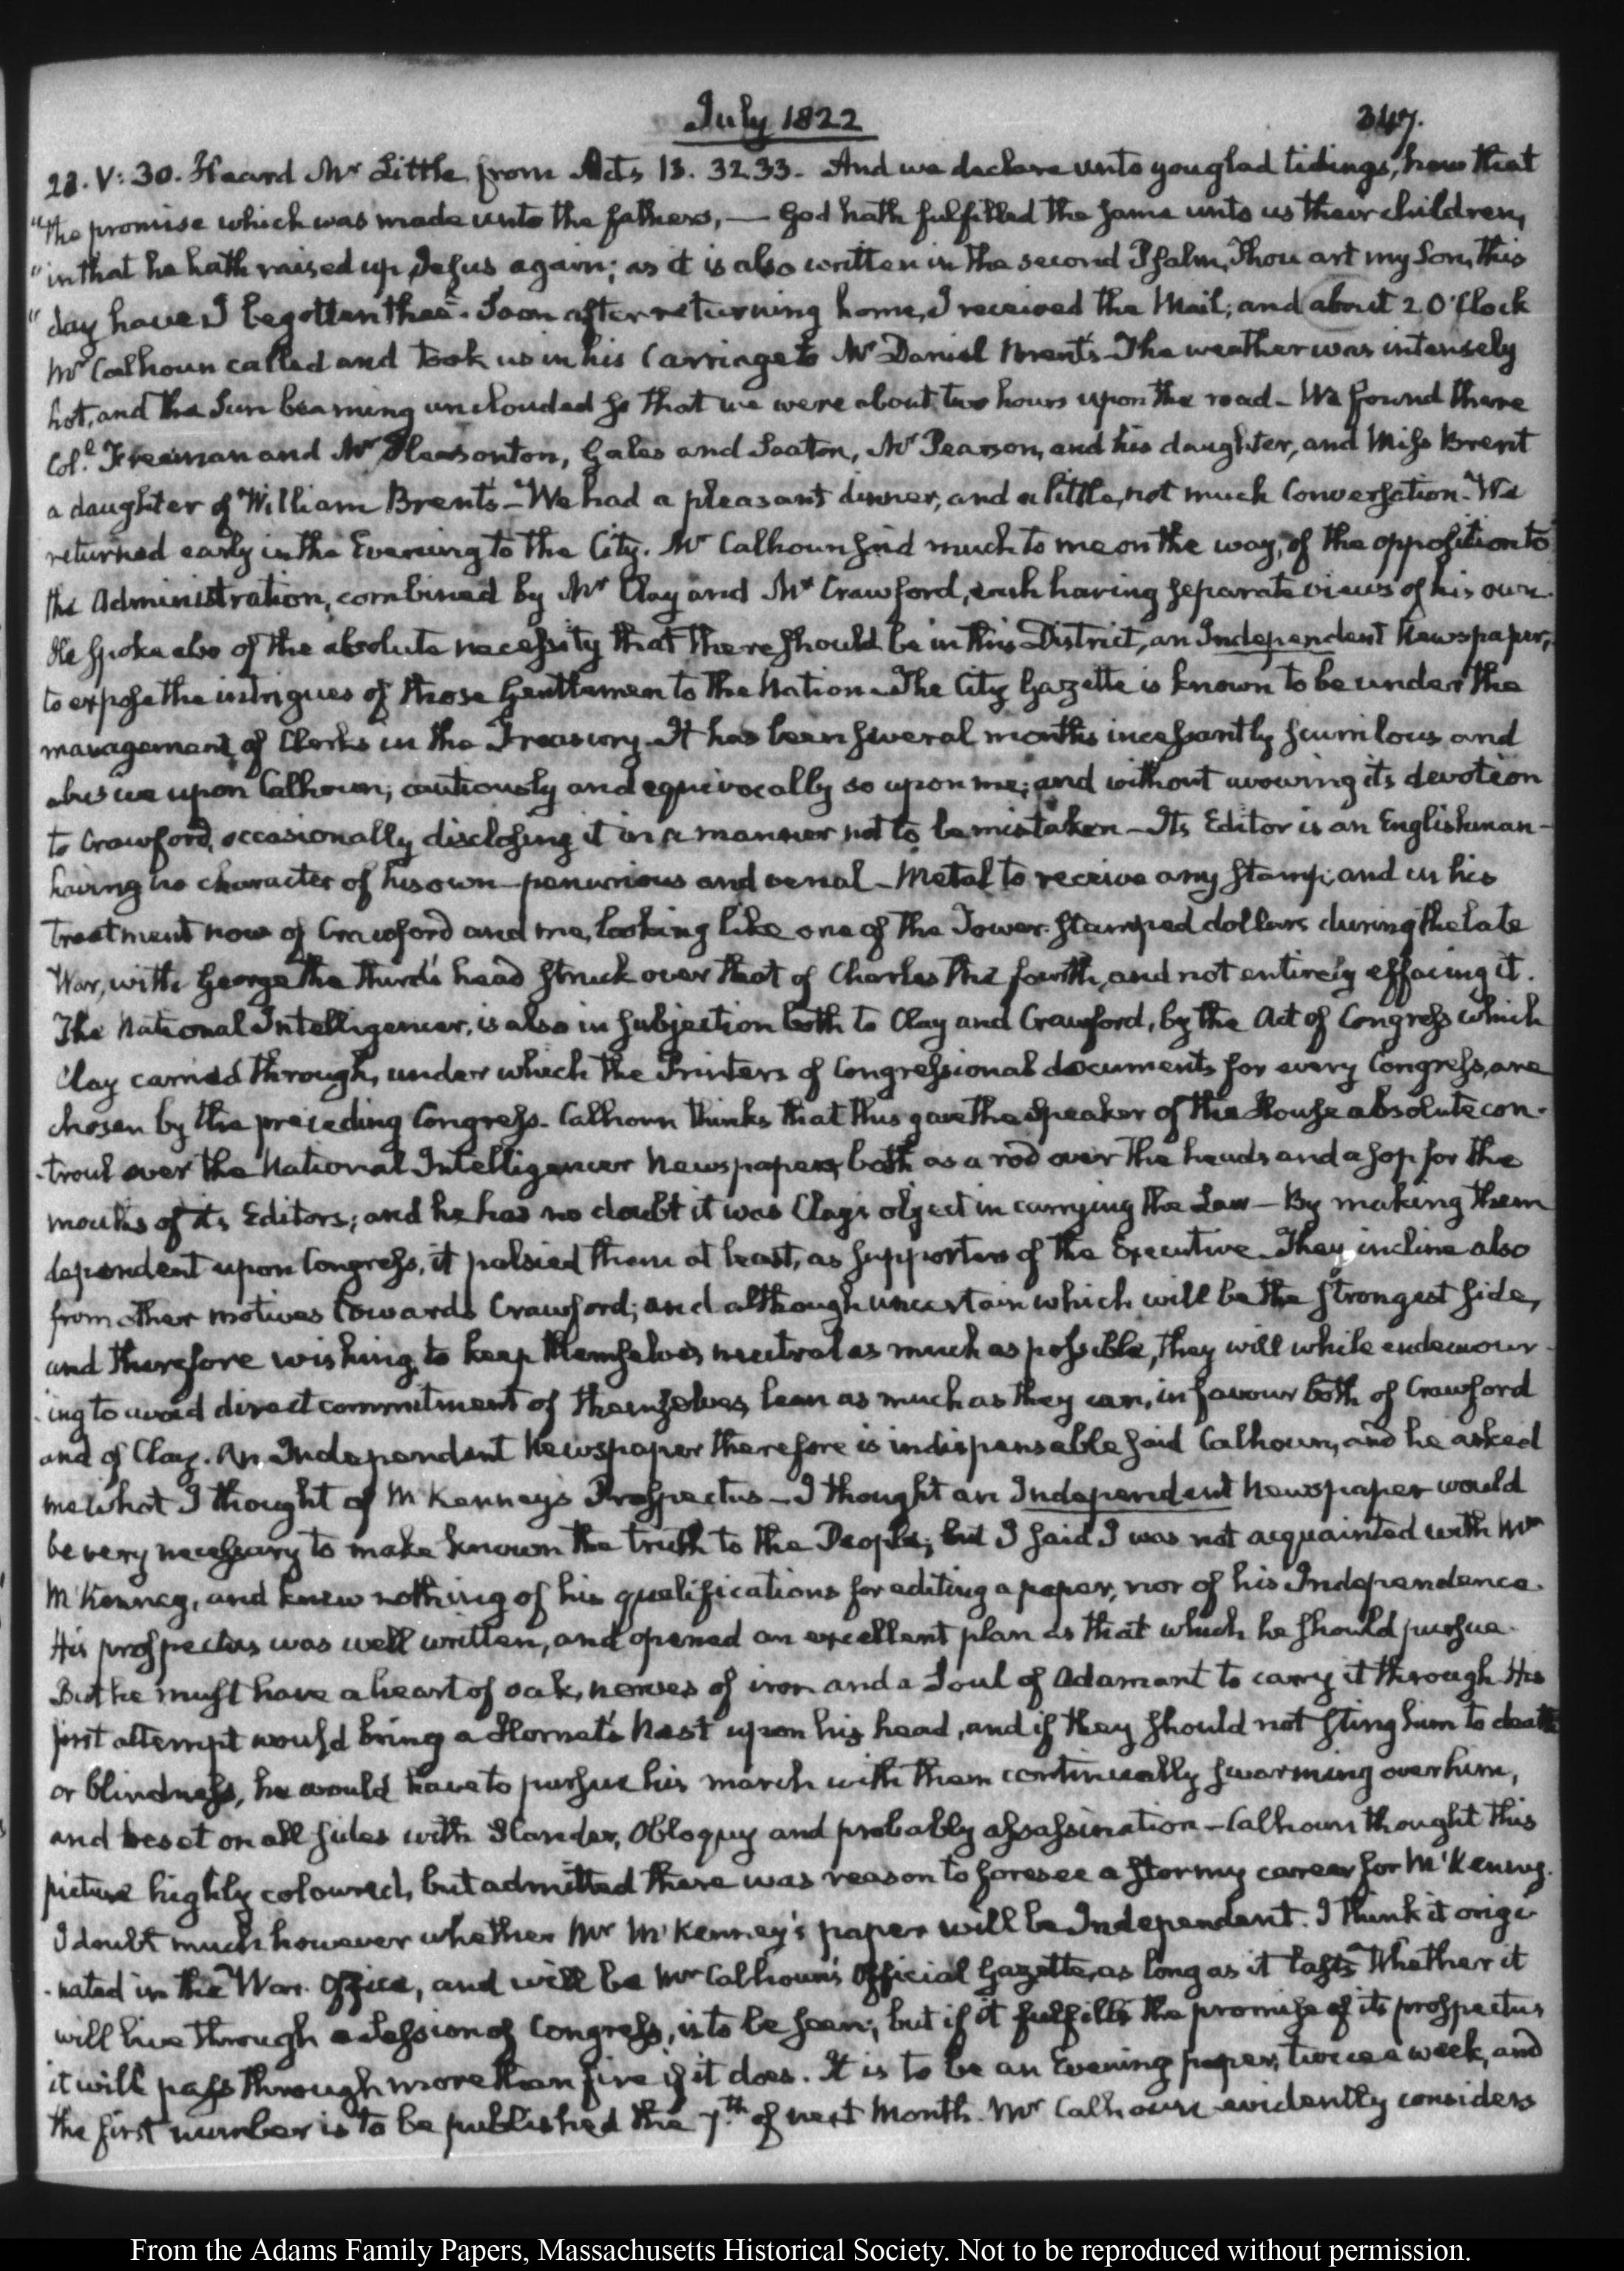 July 1822
347.
28. V: 30. Heard Mr Little from Acts 13. 32.33. And we declare unto you glad tidings, how that
"the promise which was made unto the fathers, — God hath fulfilled the same unto us their children,
"in that he hath raised up Jesus again; as it is also written in the second Psalm, Thou art my Son, this
"day have I begotten thee". Soon after returning home, I received the Mail; and about 2 O'Clock
Mr Calhoun called and took us in his Carriage to Mr Daniel Brent's. The weather was intensely
hot, and the Sun beaming unclouded so that we were about two hours upon the road - We found there
Col.l Freeman and Mr Pleasonton, Gales and Seaton, Mr Pearson, and his daughter, and Miss Brent
a daughter of William Brent's - We had a pleasant dinner, and a little, not much Conversation. We
returned early in the Evening to the City. Mr Calhoun said much to me on the way, of the opposition to
the Administration, combined by Mr Clay and Mr Crawford, each having separate views of his own.
He spoke also of the absolute necessity that there should be in this District, an Independent Newspaper,
to expose the intrigues of those Gentlemen to the Nation. The City Gazette is known to be under the
management of Clerks in the Treasury. It has been several months incessantly scurrilous and
abusive upon Calhoun; cautiously and equivocally so upon me; and without avowing its devotion
to Crawford, occasionally disclosing it in a manner not to be mistaken - Its Editor is an Englishman -
having no character of his own - penurious and venal - Metal to receive any stamp; and in his
treatment now of Crawford and me, looking like one of the Tower-stamped dollars during the late
War, with George the third's head struck over that of Charles the fourth, and not entirely effacing it.
The National Intelligencer, is also in subjection both to Clay and Crawford, by the Act of Congress which
Clay carried through, under which the Printers of Congressional documents for every Congress, are
chosen by the preceding Congress. Calhoun thinks that this gave the Speaker of the House absolute con-
-troul over the National Intelligencer Newspaper, both as a rod over the heads and a sop for the
mouths of its Editors; and he has no doubt it was Clay's object in carrying the Law - By making them
dependent upon Congress, it palsied them at least, as supporters of the Executive. They incline also
from other motives towards Crawford; and although uncertain which will be the strongest side,
and therefore wishing to keep themselves neutral as much as possible, they will while endeavour-
-ing to avoid direct commitment of themselves, lean as much as they can, in favour both of Crawford
and of Clay. An Independent Newspaper therefore is indispensable said Calhoun, and he asked
me what I thought of McKenney's Prospectus - I thought an Independent Newspaper would
be very necessary to make known the truth to the People; but I said I was not acquainted with Mr
McKenney, and knew nothing of his qualifications for editing a paper, nor of his Independence.
His prospectus was well written, and opened an excellent plan as that which he should pursue.
But he must have a heart of oak, nerves of iron and a Soul of Adamant to carry it through. His
first attempt would bring a Hornet's Nest upon his head, and if they should not sting him to death
or blindness, he would have to pursue his march with them continually swarming over him,
and beset on all sides with Slander, Obloquy and probably assassination - Calhoun thought this
picture highly coloured, but admitted there was reason to foresee a stormy career for McKenney.
I doubt much however whether Mr McKenney's paper will be Independent. I think it origi-
-nated in the War Office, and will be Mr Calhoun's Official Gazette, as long as it lasts. Whether it
will live through a Session of Congress, is to be seen; but if it fulfills the promise of its prospectus
it will pass through more than fire if it does. It is to be an Evening paper, twice a week, and
the first number is to be published the 7th of next Month. Mr Calhoun evidently considers
From the Adams Family Papers, Massachusetts Historical Society. Not to be reproduced without permission.